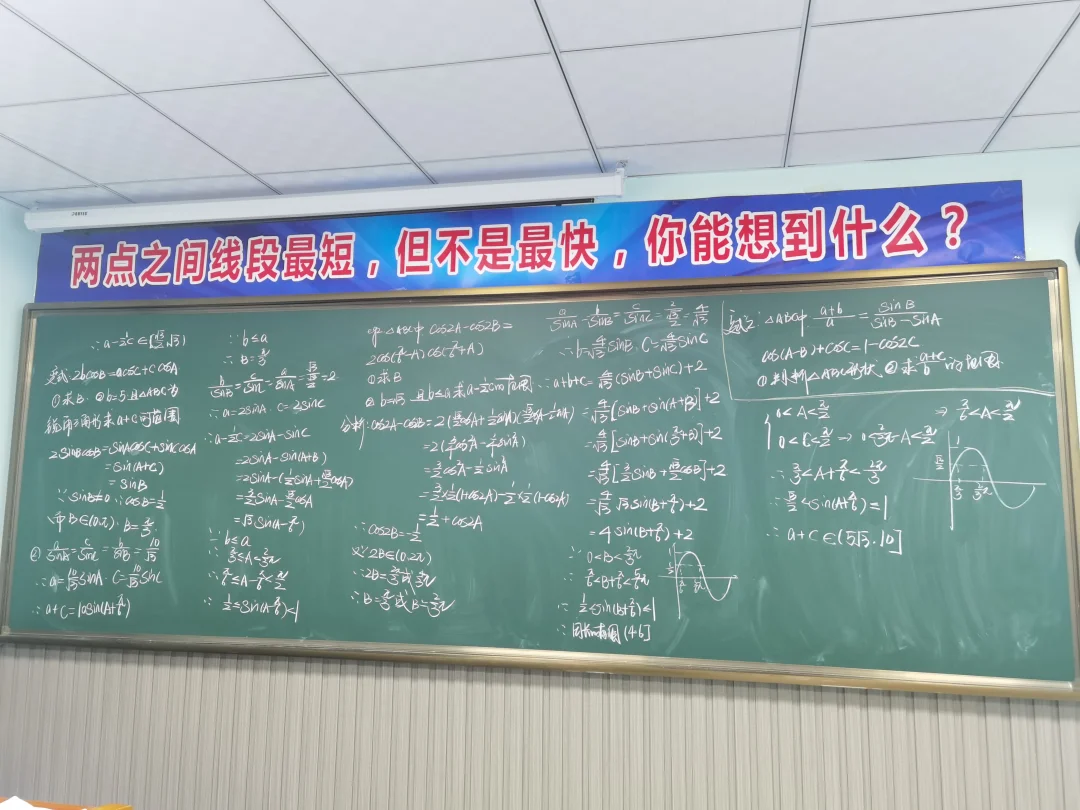 两点之间线段最短，但不是最快，你能想到什么？
∴ a-½c∈[√3/2,√3)
变式: 2bcosB=acosC+ccosA
①求B. ②b=5且△ABC为
锐角三角形求a+c的范围
2sinBcosB=sinAcosC+sinCcosA
=sin(A+C)
=sinB
∵sinB≠0 ∴cosB=1/2
而B∈(0,π). B=π/3.
② a/sinA=c/sinC=b/sinB=10/√3
∴a=10/√3 sinA. C=10/√3 sinC
∴a+C=10sin(A+π/6)
∵b≤a
∴B=π/3
b/sinB=c/sinC=a/sinA=√3/(√3/2)=2
∴a=2sinA. C=2sinC
∴a-½C=2sinA-sinC
=2sinA-sin(A+B)
=2sinA-(½sinA+√3/2cosA)
=3/2sinA-√3/2cosA
=√3sin(A-π/6)
∵b≤a
∴π/3≤A<2/3π
∴π/6≤A-π/6<π/2
∴½≤sin(A-π/6)<1
△ABC中 cos2A-cos2B=
2cos(π/6-A)cos(π/6+A)
①求B
②b=√3 且b≤a求a-½c的范围
分析: cos2A-cos2B=2(√3/2cosA+½sinA)(√3/2cosA-½sinA)
=2(¾cos²A-¼sin²A)
=3/2cos²A-½sin²A
=3/2×½(1+cos2A)-½×½(1-cos2A)
=½+cos2A
∴cos2B=-½
又∵2B∈(0,2π)
∴2B=2/3π或4/3π
∴B=π/3或B=2/3π
a/sinA=b/sinB=c/sinC=2/(√3/2)=4/√3
∴b=4/√3 sinB. C=4/√3 sinC
∴a+b+c=4/√3(sinB+sinC)+2
=4/√3[sinB+sin(A+B)]+2
=4/√3[sinB+sin(π/3+B)]+2
=4/√3[3/2sinB+√3/2cosB]+2
=4/√3·√3sin(B+π/6)+2
=4sin(B+π/6)+2
∵0<B<2/3π
∴π/6<B+π/6<5/6π
∴½<sin(B+π/6)≤1
∴周长范围(4,6]
变式2: △ABC中. (a+b)/a=sinB/(sinB-sinA)
cos(A-B)+cosC=1-cos2C
①判断△ABC形状 ②求(a+c)/b的范围
0<A<π/2
0<C<π/2 ⇒ 0<2/3π-A<π/2
⇒ π/6<A<π/2
∴π/3<A+π/6<2π/3
∴√3/2<sin(A+π/6)≤1
∴a+c∈(5√3,10]